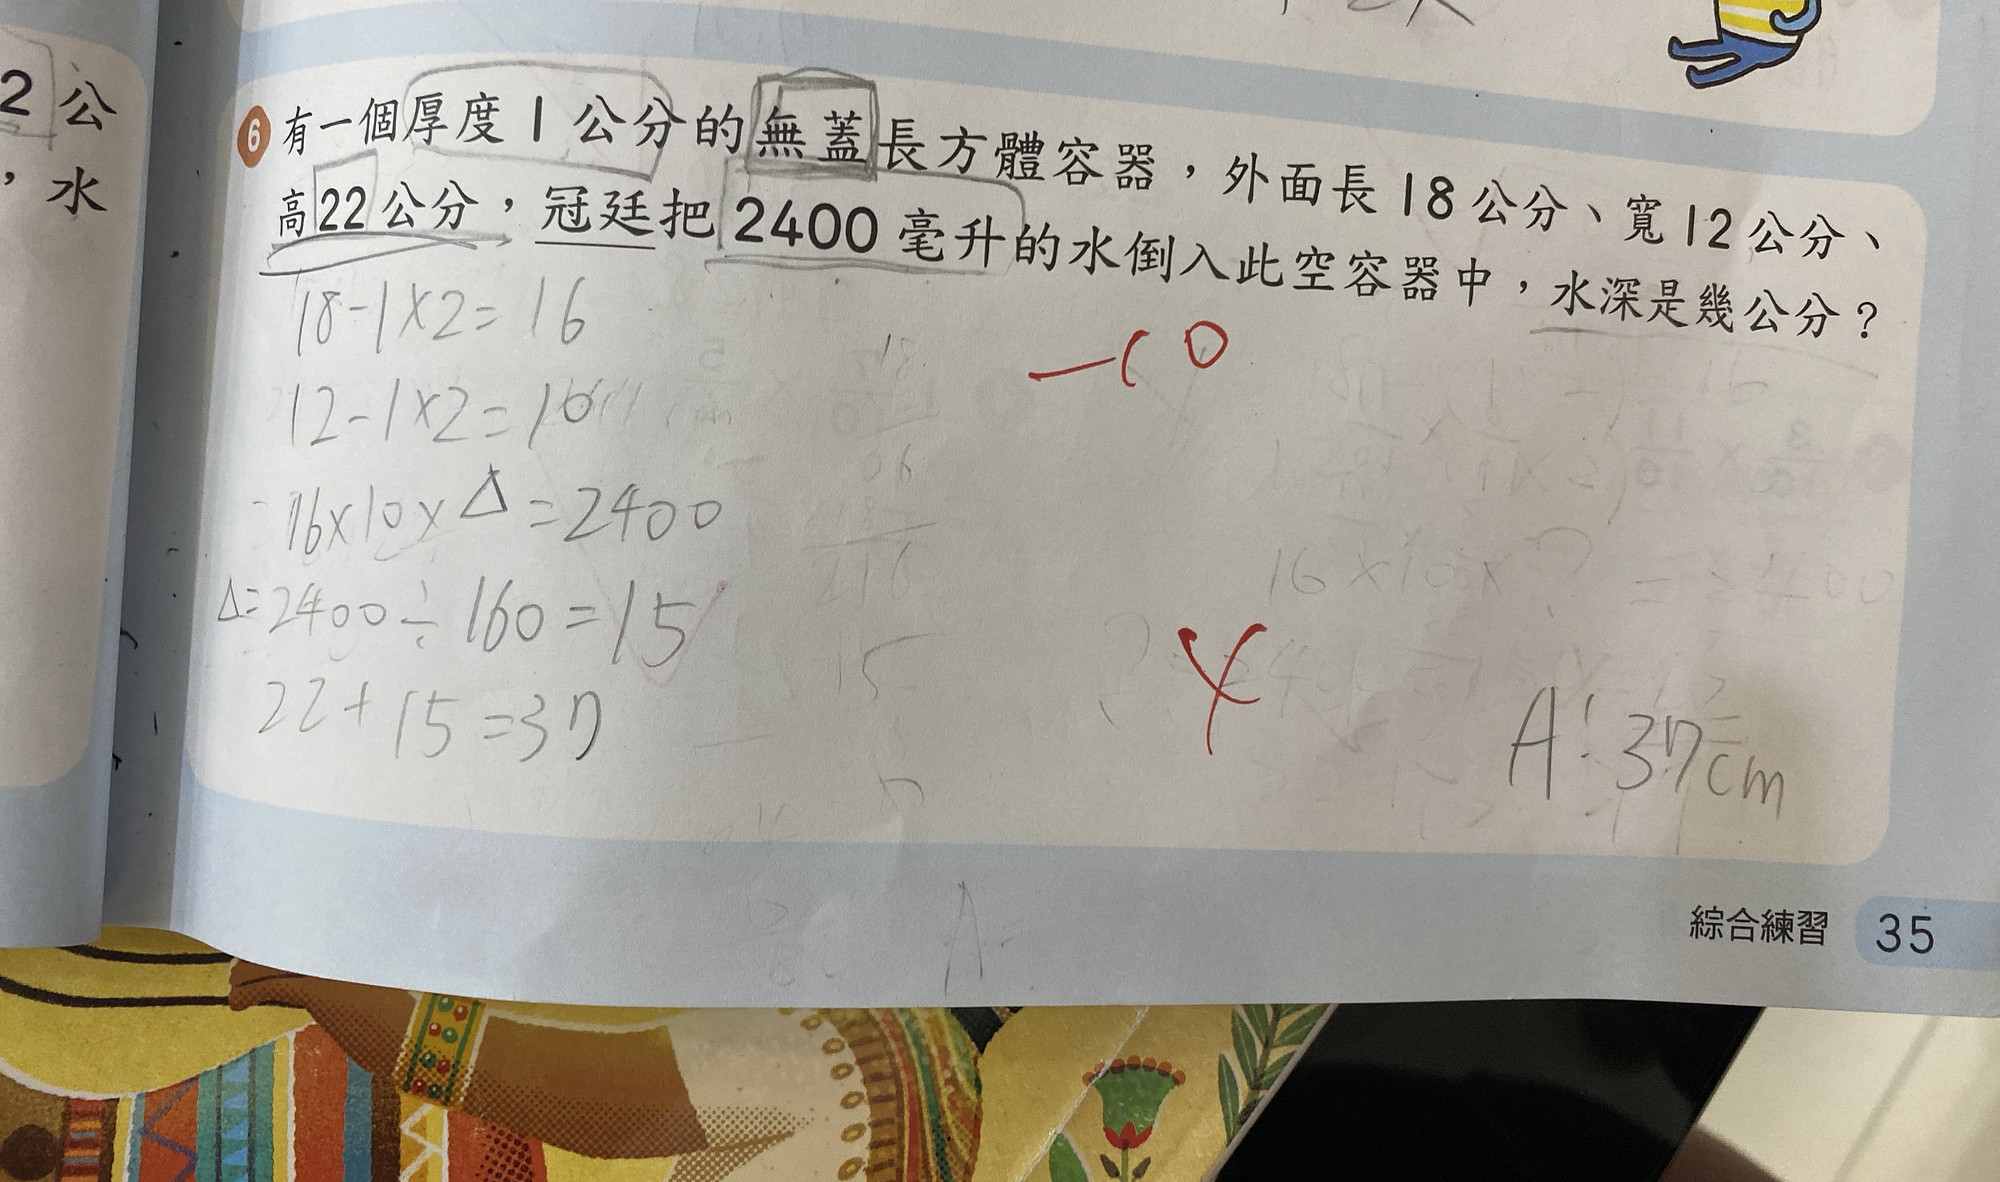 2 公
，水
6 有一個厚度 1 公分的無蓋長方體容器，外面長 18 公分、寬 12 公分、
高 22 公分，冠廷把 2400 毫升的水倒入此空容器中，水深是幾公分？
18-1×2=16
12-1×2=10
=16×10×△=2400
△=2400÷160=15
22+15=37
-10
16×10×?=2400
15
A:37cm
A:
綜合練習 35